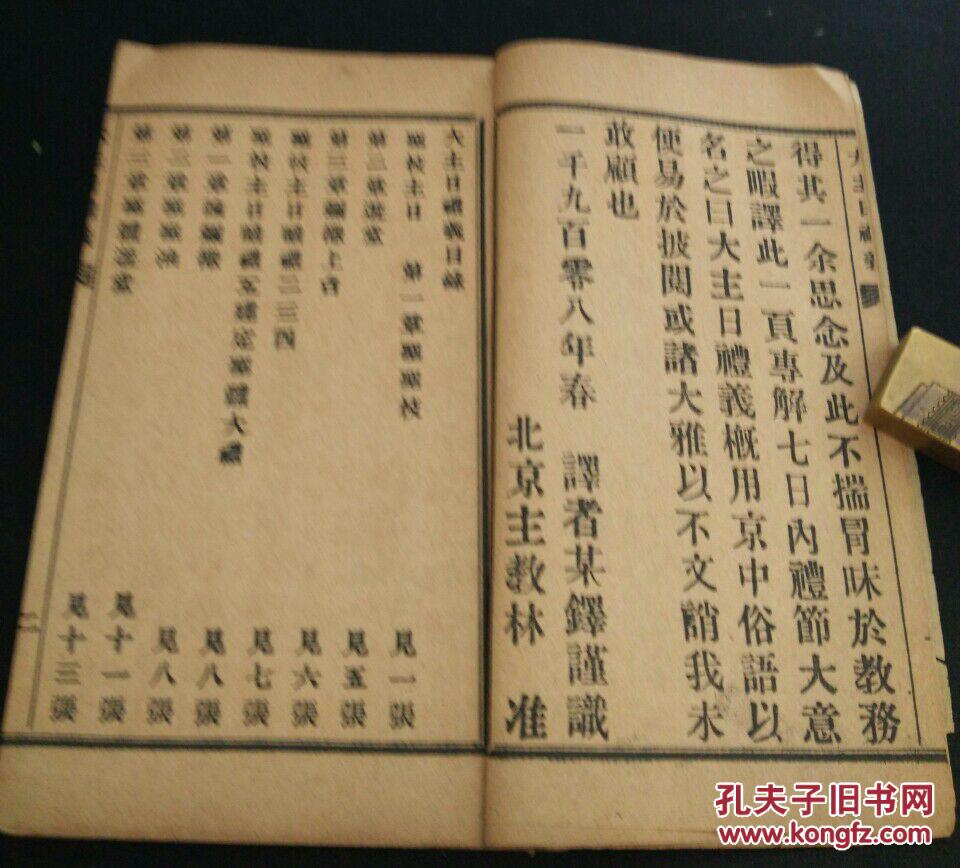 得其一余思念及此不揣冒昧於教務
之暇譯此一頁專解七日內禮節大意
名之曰大主日禮義槪用京中俗語以
便易於披閱或諸大雅以不文誚我未
敢顧也
一千九百零八年春 譯者某鐸謹識
北京主教林 准
大主日禮義目錄
聖枝主日 第一章聖聖枝 見一張
第二章遊堂 見五張
第三章彌撒上 見六張
聖枝主日瞻禮二三四 見七張
瞻禮五建定聖體大禮 見八張
第一章彌撒 見八張
第二章 見十一張
第三章 見十三張
二
孔夫子旧书网
www.kongfz.com